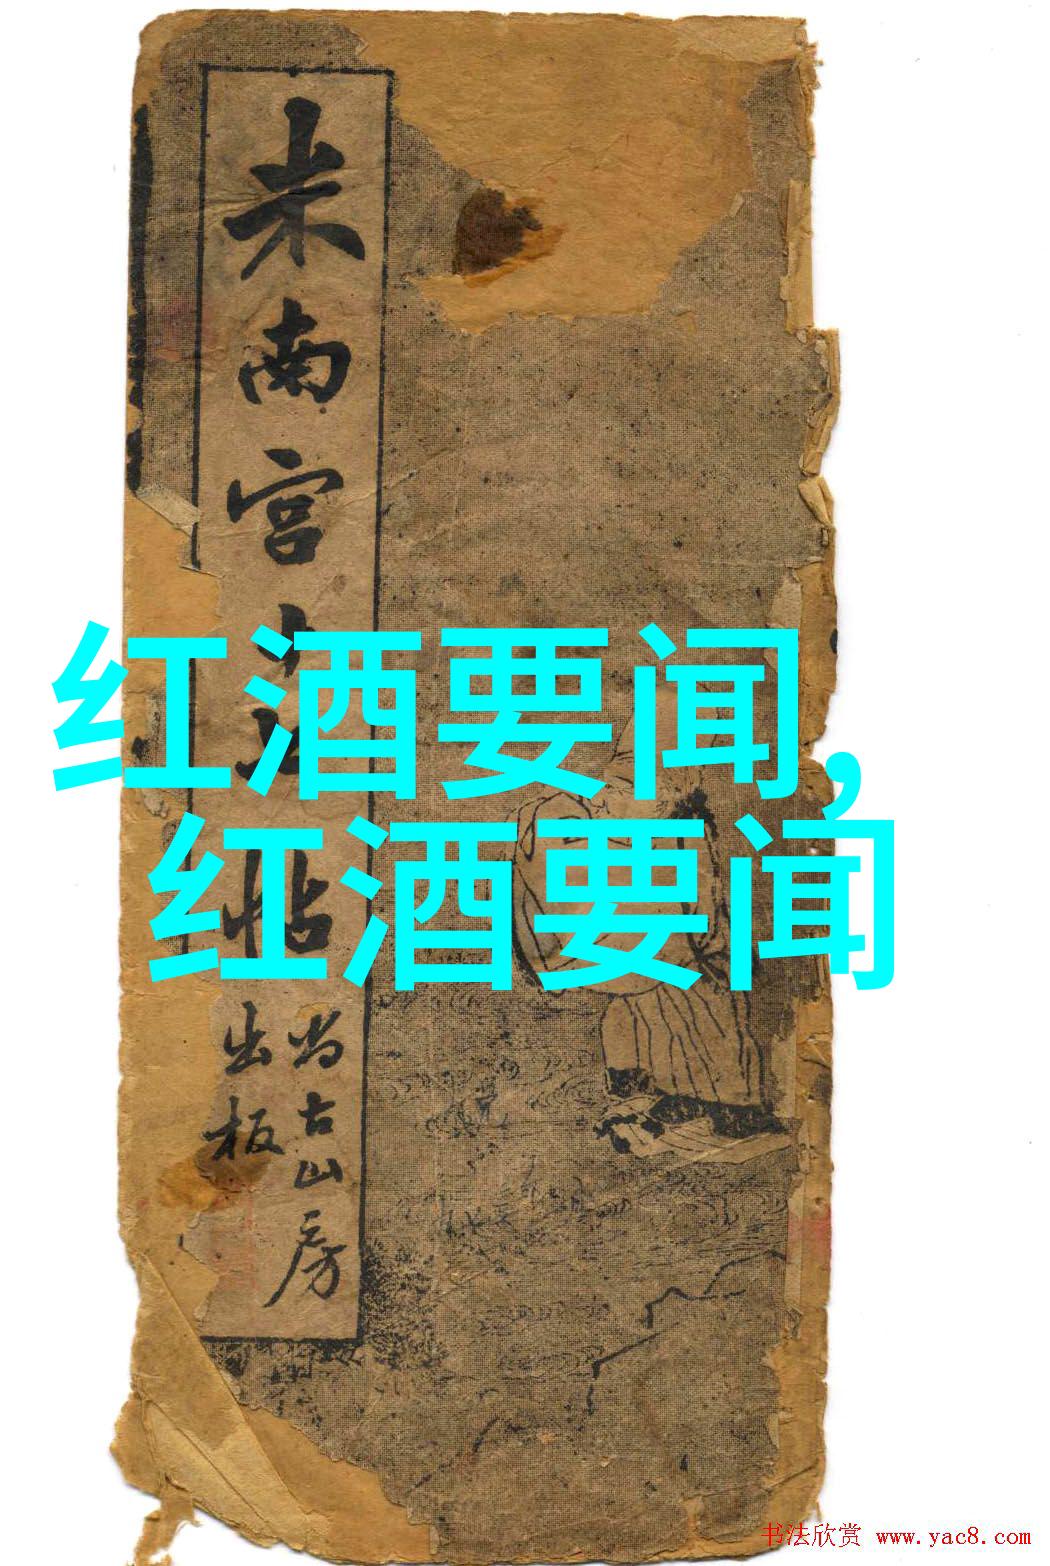 米南宫
帖
尚古山房
出板
红酒要闻,
红酒要闻
书法欣赏 www.yac8.com